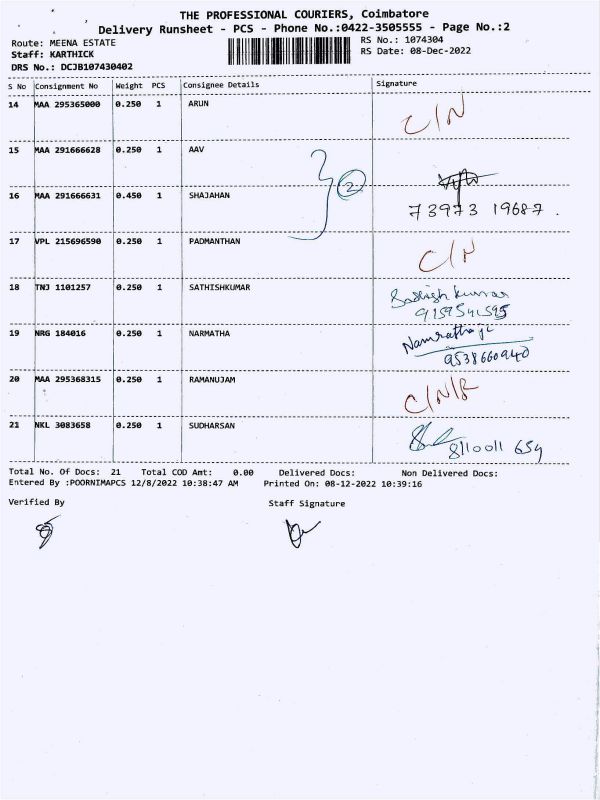 THE PROFESSIONAL COURIERS, Coimbatore
Delivery Runsheet - PCS - Phone No.:0422-3505555 - Page No.:2
Route: MEENA ESTATE RS No.: 1074304
Staff: KARTHICK RS Date: 08-Dec-2022
DRS No.: DCJB107430402
S No Consignment No Weight PCS Consignee Details Signature
14 MAA 295365000 0.250 1 ARUN C/N
15 MAA 291666628 0.250 1 AAV
2
16 MAA 291666631 0.450 1 SHAJAHAN 73973 19687
17 VPL 215696590 0.250 1 PADMANTHAN C/N
18 TNJ 1101257 0.250 1 SATHISHKUMAR Sathish kumar
9159541595
19 NRG 184016 0.250 1 NARMATHA
9538660940
20 MAA 295368315 0.250 1 RAMANUJAM C/N/R
21 NKL 3083658 0.250 1 SUDHARSAN
Total No. Of Docs: 21 Total COD Amt: 0.00 Delivered Docs: Non Delivered Docs:
Entered By :POORNIMAPCS 12/8/2022 10:38:47 AM Printed On: 08-12-2022 10:39:16
Verified By Staff Signature